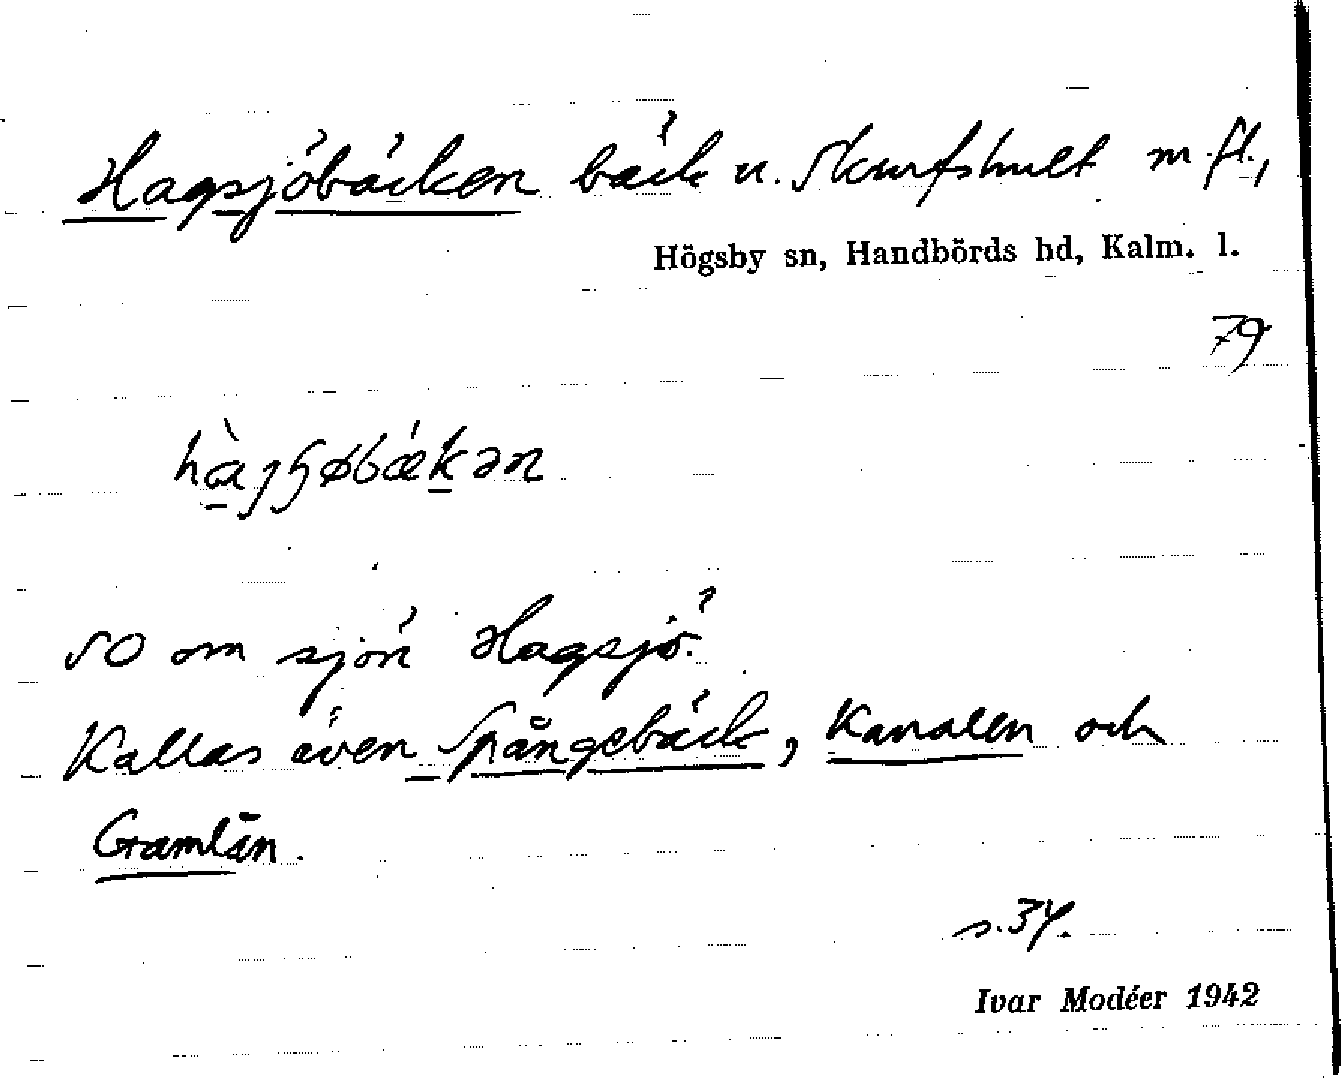 Hagsjöbäcken bäck u. Skurfshult m.fl.,
Högsby sn, Handbörds hd, Kalm. l.
79
SO om sjön Hagsjö.
Kallas även Spångebäck, Kanalen och
Gramlån.
s. 34.
Ivar Modéer 1942